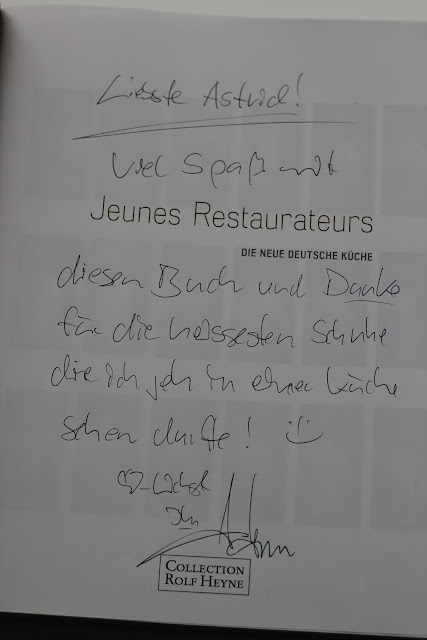 Liebste Astrid!
Viel Spaß mit
Jeunes Restaurateurs
DIE NEUE DEUTSCHE KÜCHE
diesen Buch und Danke
für die heissesten Schuhe
die ich jeh in einer Küche
sehen durfte! :-)
COLLECTION
ROLF HEYNE